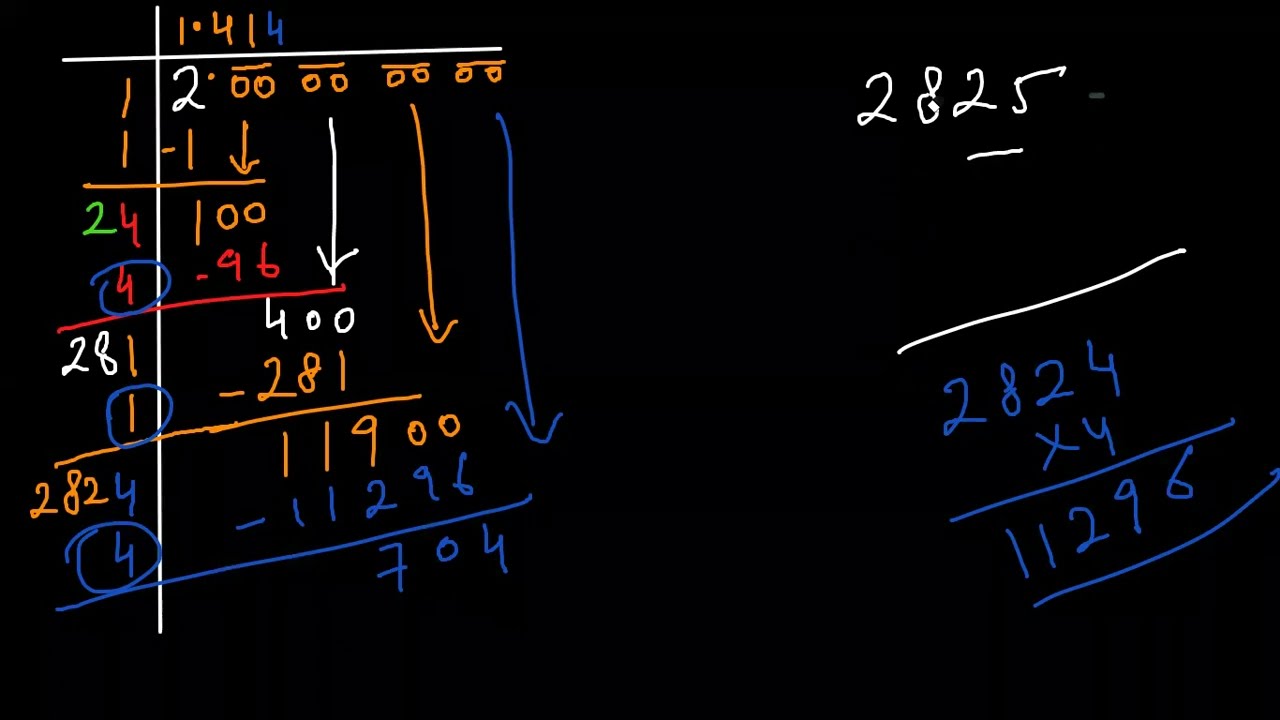 1.414
1 2.00 00 00 00
1 -1
24 100
4 -96
281 400
1 -281
2824 11900
4 -11296
704
2825 -
2824
x4
11296